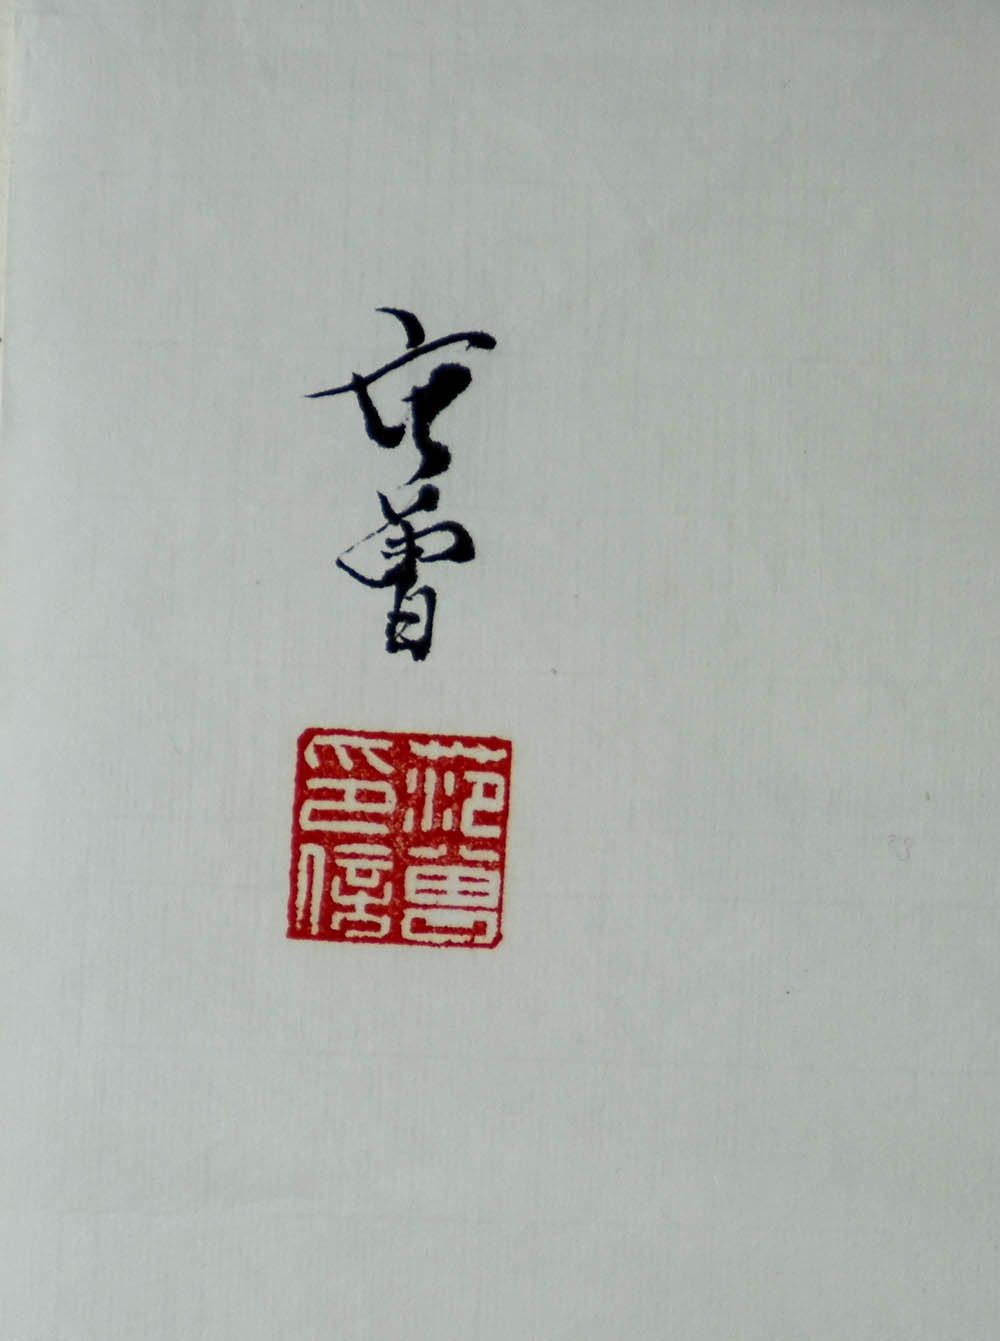 范曾
范曾
印信